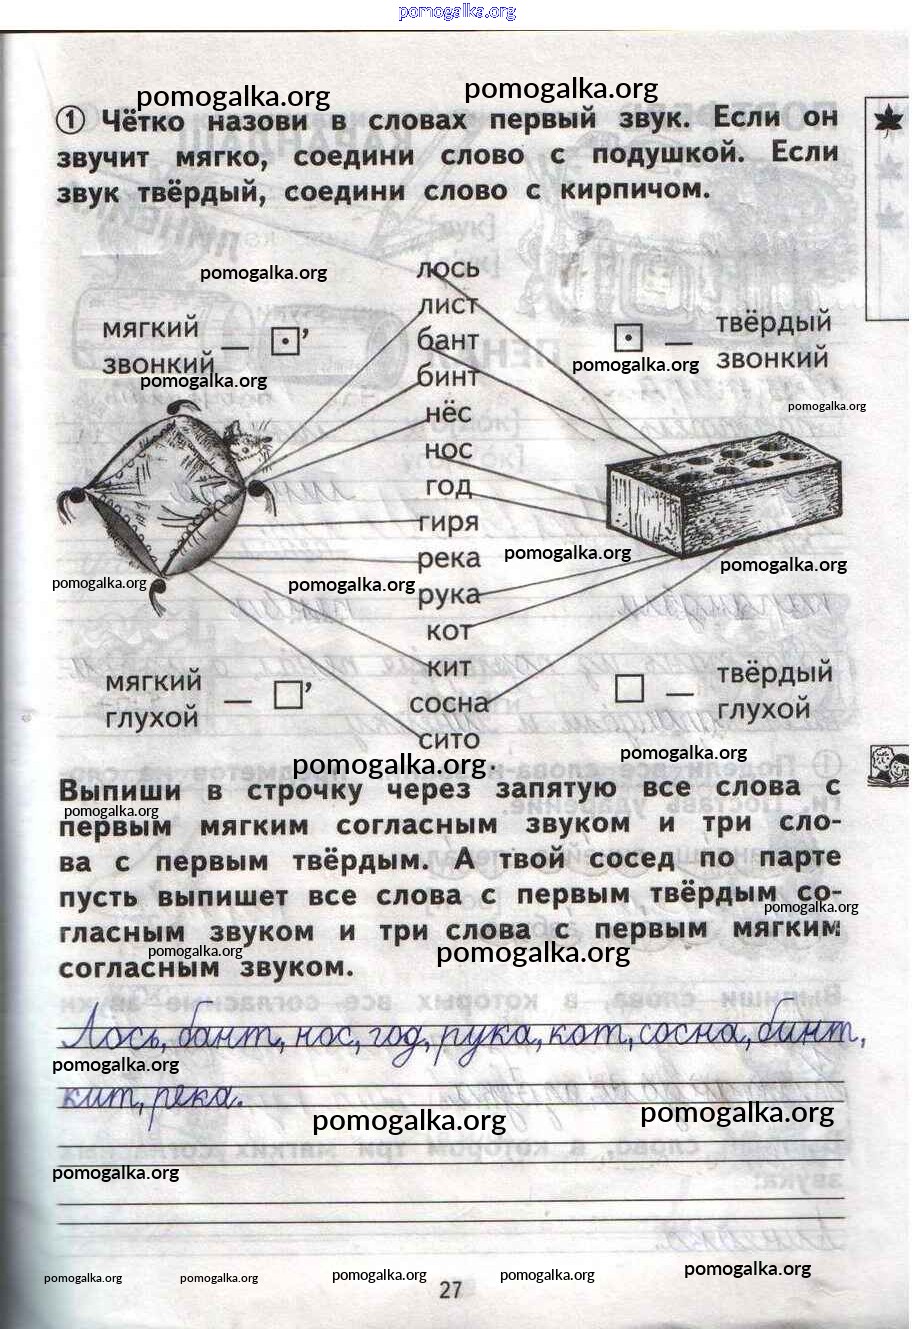 pomogalka.org
pomogalka.org
pomogalka.org
1 Чётко назови в словах первый звук. Если он
звучит мягко, соедини слово с подушкой. Если
звук твёрдый, соедини слово с кирпичом.
pomogalka.org
лось
лист
бант
бинт
нёс
нос
год
гиря
река
рука
кот
кит
сосна
сито
мягкий
звонкий
—
твёрдый
звонкий
—
pomogalka.org
pomogalka.org
pomogalka.org
pomogalka.org
pomogalka.org
pomogalka.org
pomogalka.org
мягкий
глухой
—
твёрдый
глухой
—
pomogalka.org
pomogalka.org
Выпиши в строчку через запятую все слова с
pomogalka.org
первым мягким согласным звуком и три сло-
ва с первым твёрдым. А твой сосед по парте
пусть выпишет все слова с первым твёрдым со-
pomogalka.org
гласным звуком и три слова с первым мягким
pomogalka.org
pomogalka.org
согласным звуком.
Лось, бант, нос, год, рука, кот, сосна, бинт,
pomogalka.org
кит, река.
pomogalka.org
pomogalka.org
pomogalka.org
pomogalka.org
pomogalka.org
pomogalka.org
pomogalka.org
pomogalka.org
27